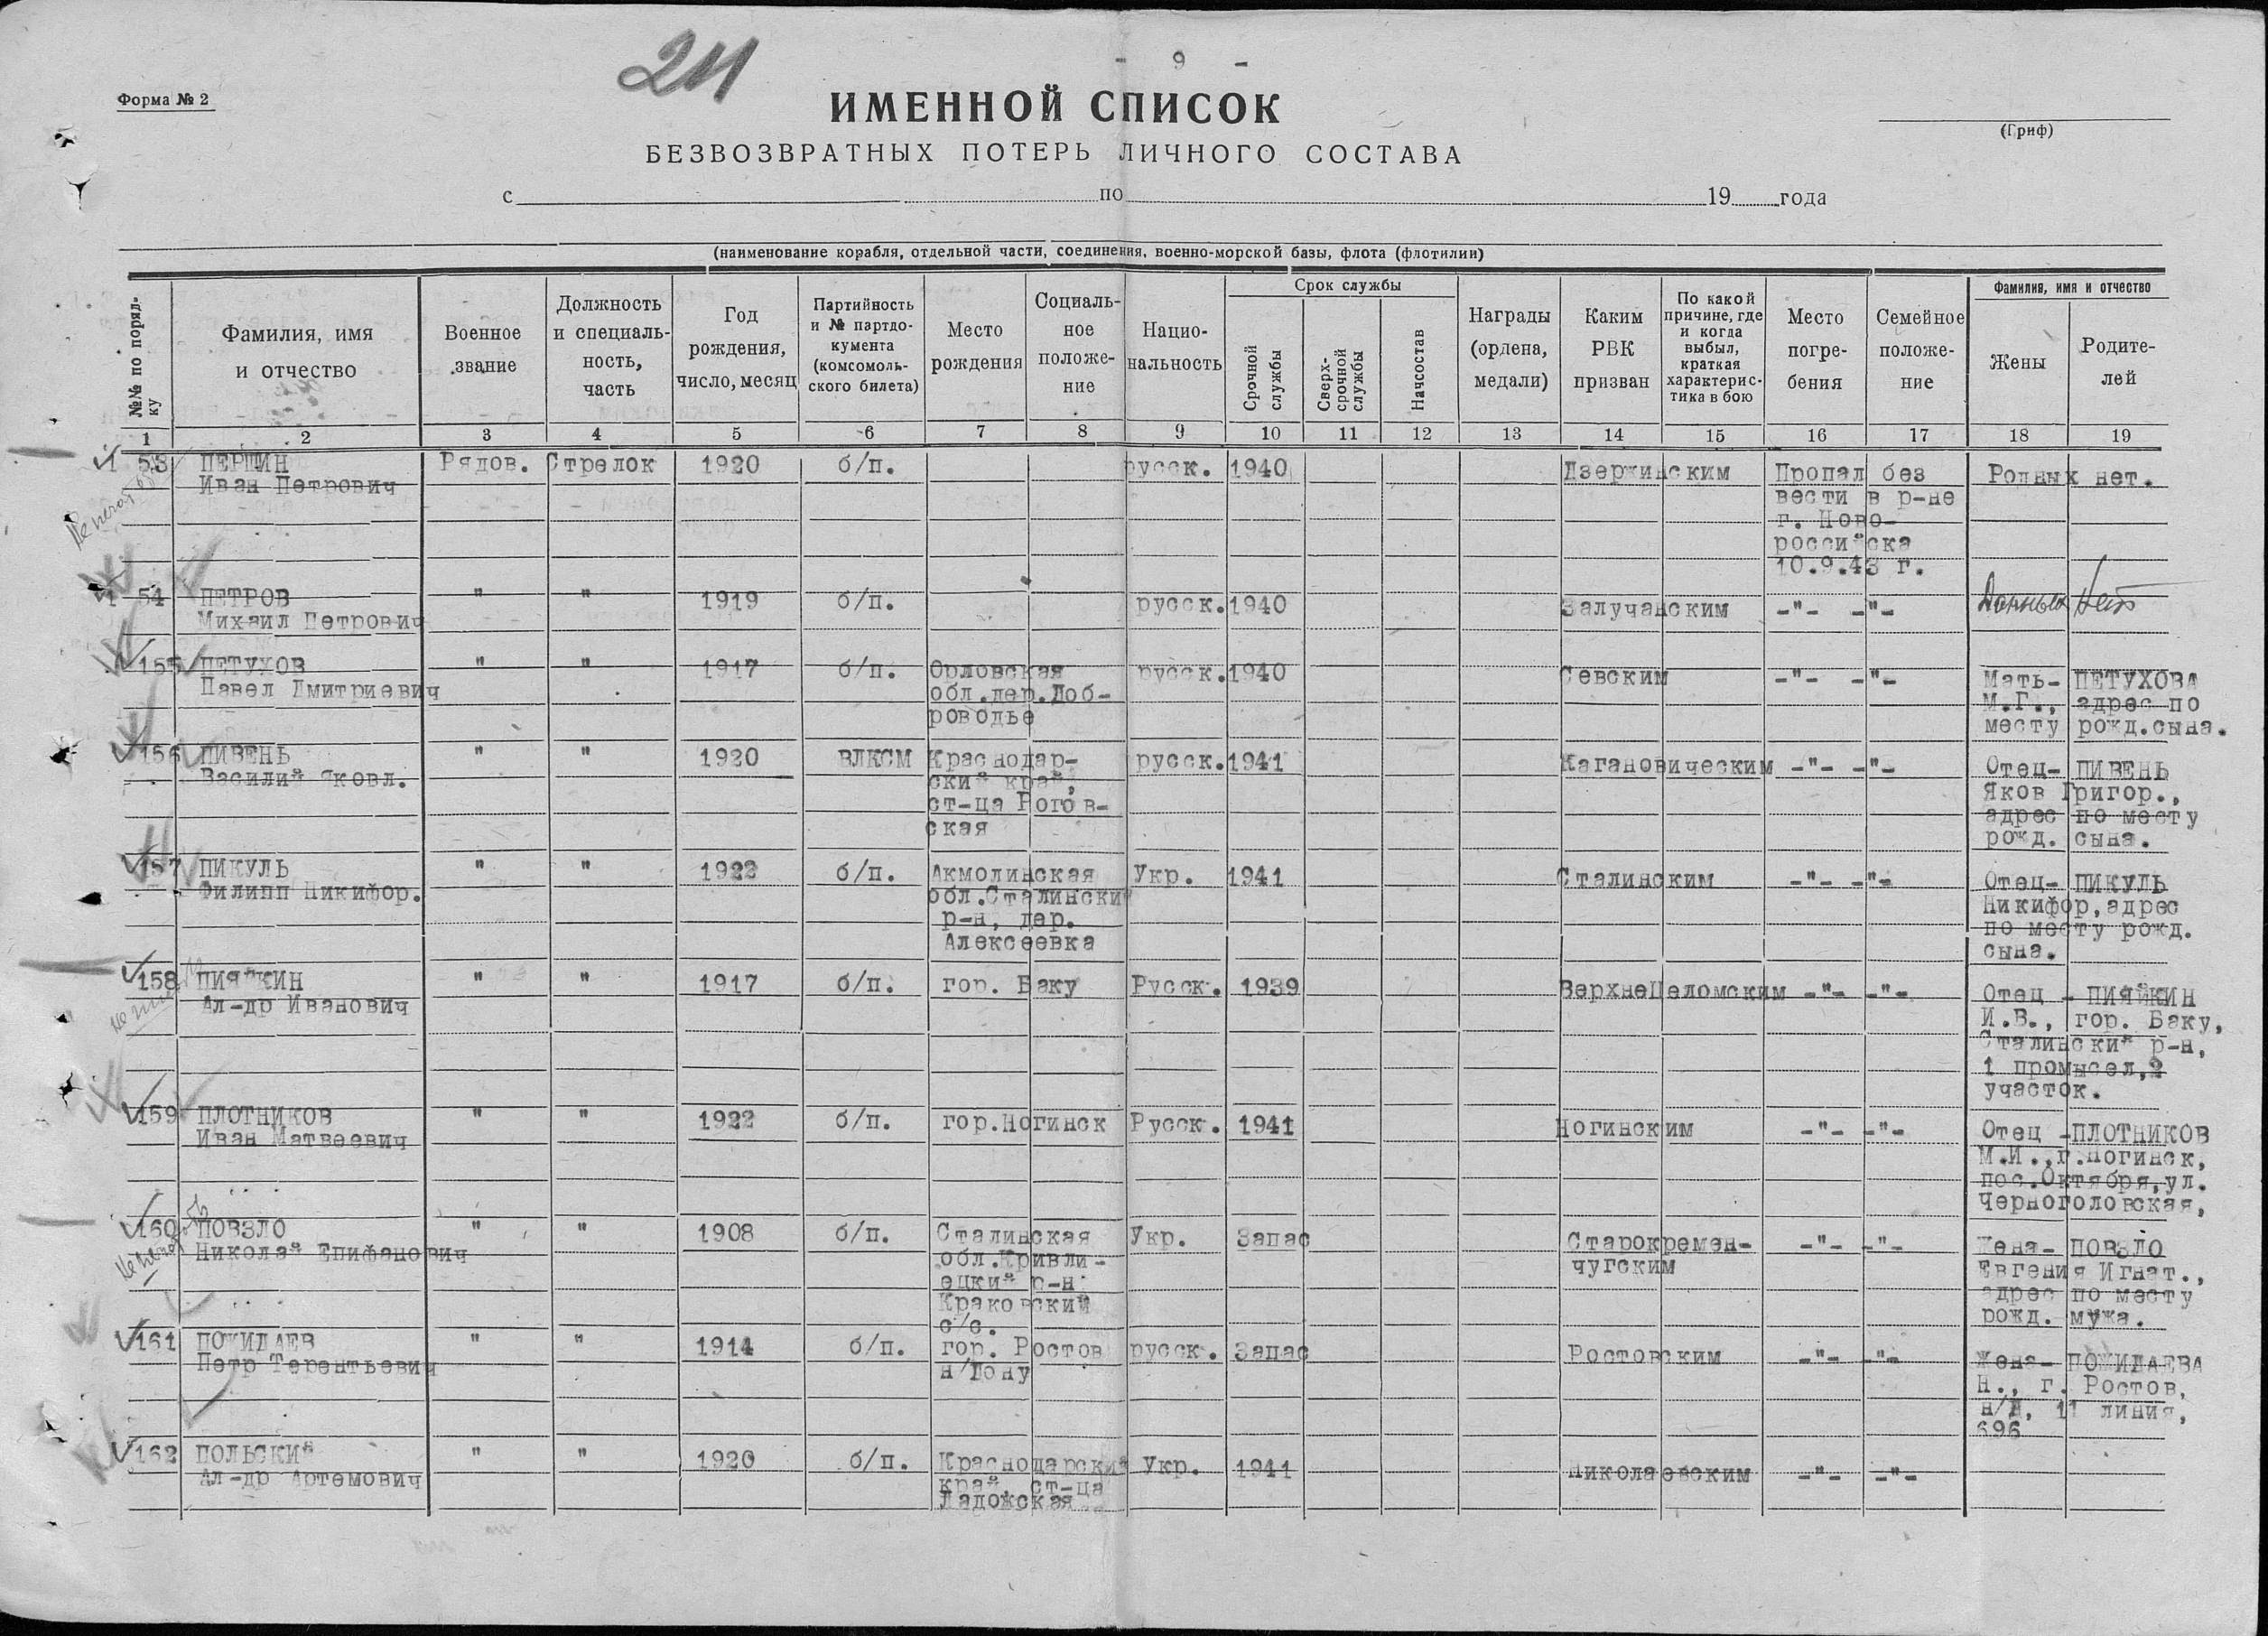 - 9 -
24
Форма № 2
ИМЕННОЙ СПИСОК
(Гриф)
БЕЗВОЗВРАТНЫХ ПОТЕРЬ ЛИЧНОГО СОСТАВА
с по 19 года
(наименование корабля, отдельной части, соединения, военно-морской базы, флота (флотилии)
№№ по поряд-
ку
Фамилия, имя
и отчество
Военное
звание
Должность
и специаль-
ность,
часть
Год
рождения,
число, месяц
Партийность
и № партдо-
кумента
(комсомоль-
ского билета)
Место
рождения
Социаль-
ное
положе-
ние
Нацио-
нальность
Срок службы
Срочной
службы
Сверх-
срочной
службы
Начсостав
Награды
(ордена,
медали)
Каким
РВК
призван
По какой
причине, где
и когда
выбыл,
краткая
характерис-
тика в бою
Место
погре-
бения
Семейное
положе-
ние
Фамилия, имя и отчество
Жены
Родите-
лей
1 2 3 4 5 6 7 8 9 10 11 12 13 14 15 16 17 18 19
153 ПЕРШИН Рядов. Стрелок 1920 б/п. русск. 1940 Дзержинским Пропал без Родных нет.
Иван Петрович
вести в р-не
г. Ново-
россииска
10.9.43 г.
154 ПЕТРОВ " " 1919 б/п. русск. 1940 Залучанским -"- -"- Данных нет
Михаил Петрович
155 ПЕТУХОВ " " 1917 б/п. Орловская русск. 1940 Севским -"- -"- Мать- ПЕТУХОВА
Павел Дмитриевич обл.дер.Доб- М.Г., адрес по
роводье месту рожд.сына.
156 ПИВЕНЬ " " 1920 ВЛКСМ Краснодар- русск. 1941 Кагановическим -"- -"- Отец- ПИВЕНЬ
Василий Яковл. ский край, Яков Григор.,
ст-ца Рогов- адрес по месту
ская рожд. сына.
157 ПИКУЛЬ " " 1922 б/п. Акмолинская Укр. 1941 Сталинским -"- -"- Отец- ПИКУЛЬ
Филипп Никифор. обл.Сталинский Никифор,адрес
р-н, дер. по месту рожд.
Алексеевка сына.
158 ПИЯЙКИН " " 1917 б/п. гор. Баку Русск. 1939 ВерхнеЦеломским -"- -"- Отец - ПИЯЙКИН
Ал-др Иванович И.В., гор. Баку,
Сталинский р-н,
1 промысел,2
участок.
159 ПЛОТНИКОВ " " 1922 б/п. гор.Ногинск Русск. 1941 Ногинским -"- -"- Отец -ПЛОТНИКОВ
Иван Матвеевич М.И.,г.Ногинск,
пос.Октября,ул.
Черноголовская,
160 ПОВЗЛО " " 1908 б/п. Сталинская Укр. Запас Старокремен- -"- -"- Жена- ПОВЗЛО
Николай Епифанович обл.Кривли- чугским Евгения Игнат.,
ецкий р-н адрес по месту
Краковский рожд. мужа.
с/с.
161 ПОЖИДАЕВ " " 1914 б/п. гор. Ростов русск. Запас Ростовским -"- -"- Жена- ПОЖИДАЕВА
Петр Терентьевич н/Дону Н., г. Ростов,
н/Д, 11 линия,
696
162 ПОЛЬСКИЙ " " 1920 б/п. Краснодарский Укр. 1941 Николаевским -"- -"-
Ал-др Артемович край, ст-ца
Ладожская